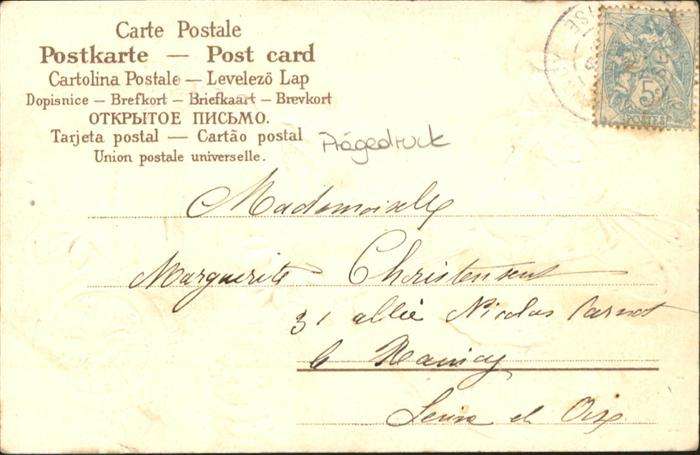 Carte Postale
Postkarte — Post card
Cartolina Postale — Levelezö Lap
Dopisnice — Brefkort — Briefkaart — Brevkort
ОТКРЫТОЕ ПИСЬМО.
Tarjeta postal — Cartão postal
Union postale universelle.
Prägedruck
5c
POSTES
Mademoiselle
Marguerite Christensen
31 allée Nicolas Carnot
le Raincy
Seine et Oise